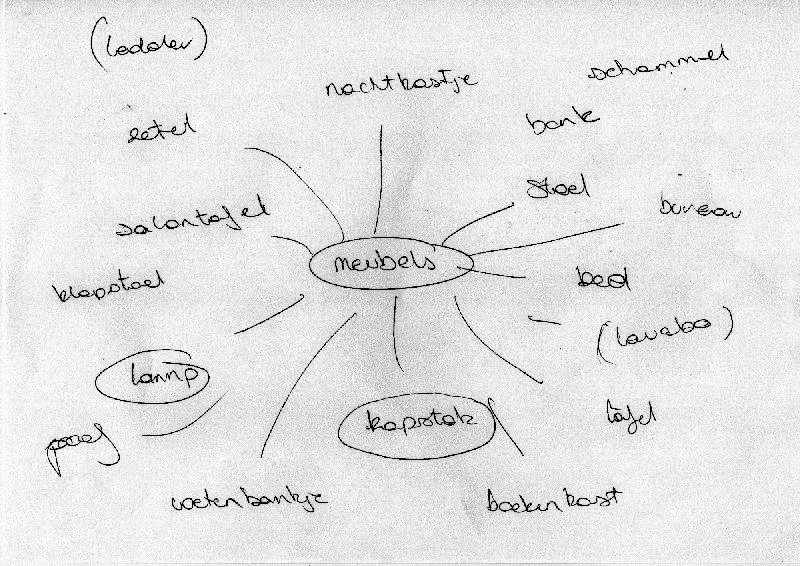 (ladder)
nachtkastje
schammel
zetel
bank
stoel
salontafel
bureau
meubels
klapstoel
bed
(lavabo)
lamp
kapstok
tafel
poef
voetenbankje
boekenkast